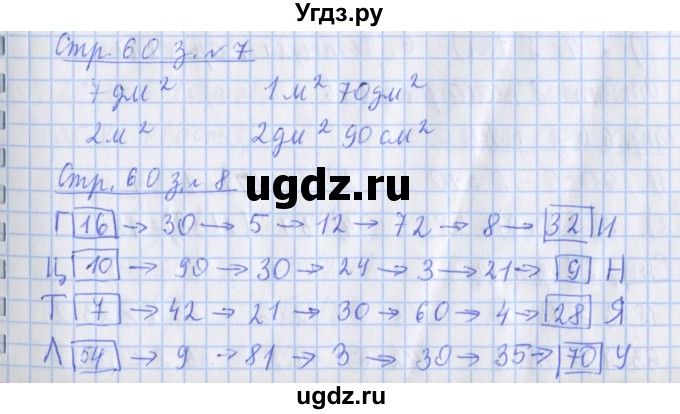 Угдз.ру
Стр. 60 з. № 7
7 дм² 1 м² 70 дм²
2 м² 2 дм² 90 см²
Стр. 60 з. № 8
ugdz.ru
Г 16 → 30 → 5 → 12 → 72 → 8 → 32 И
Ц 10 → 90 → 30 → 24 → 3 → 21 → 9 Н
Т 7 → 42 → 21 → 30 → 60 → 4 → 28 Я
Л 54 → 9 → 81 → 3 → 30 → 35 → 70 У
ugdz.ru